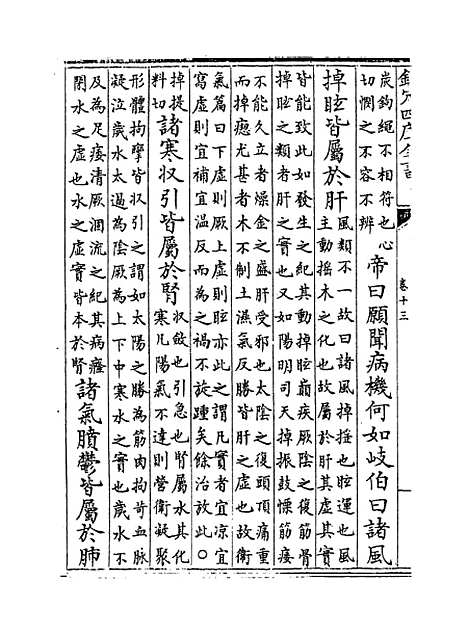 欽定四庫全書
卷十三
炭鈎繩不相符也心
切憫之不容不辨
帝曰願聞病機何如岐伯曰諸風
掉眩皆屬於肝
風類不一故曰諸風掉揺也眩運也風
主動揺木之化也故屬於肝其虛其實
皆能致此如發生之紀其動掉眩巔疾厥陰之復筋骨
掉眩之類者肝之實也又如陽明司天掉振鼓慄筋痿
不能久立者燥金之盛肝受邪也太陰之復頭頂痛重
而掉瘛尤甚者木不制土濕氣反勝皆肝之虛也故衛
氣篇曰下虛則厥上虛則眩亦此之謂凡實者宜涼宜
寫虛則宜補宜溫反而為之禍不旋踵矣餘治放此〇
掉提
料切
諸寒収引皆屬於腎
収斂也引急也腎屬水其化
寒凡陽氣不達則營衛凝聚
形體拘攣皆収引之謂如太陽之勝為筋肉拘苛血脉
凝泣歲水太過為陰厥為上下中寒水之實也歲水不
及為足痿清厥涸流之紀其病癃
閉水之虛也水之虛實皆本於腎
諸氣膹鬱皆屬於肺